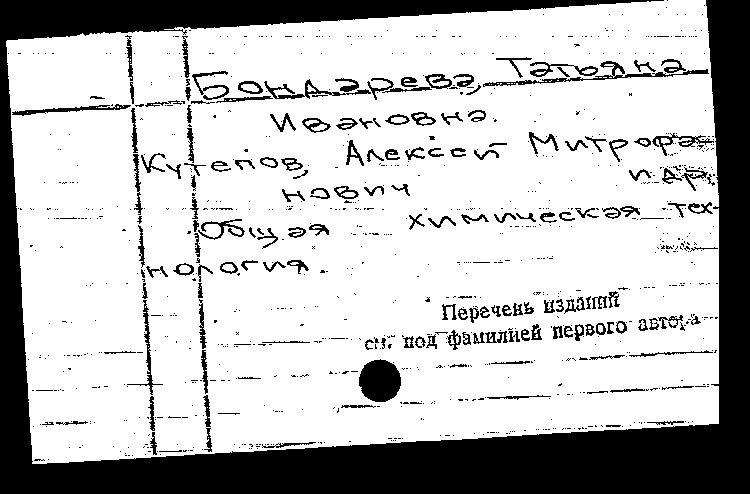 Бондарева, Татьяна
Ивановна.
Кутепов, Алексей Митрофа-
нович и др.
Общая химическая тех-
нология.
Перечень изданий
см. под фамилией первого автора